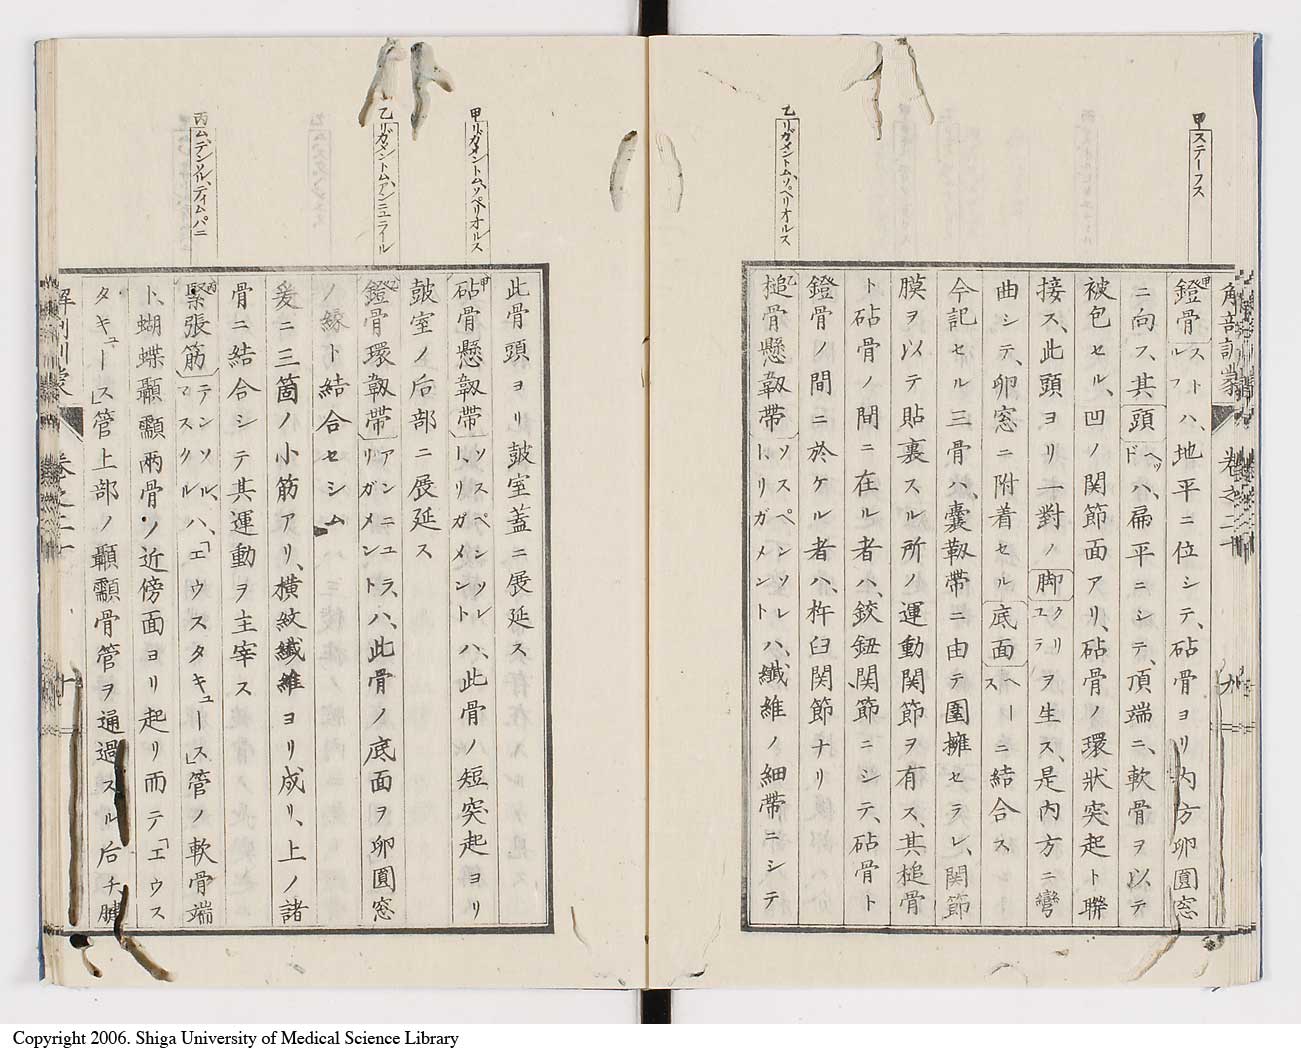 甲ステーフス
乙リガメントム、ソペリオルス
解剖訓蒙
卷之二十
九
甲鐙骨スルトフハ、地平ニ位シテ、砧骨ヨリ内方卵圓窓
ニ向フ、其頭ヘッドハ、扁平ニシテ、頂端ニ、軟骨ヲ以テ
被包セル、凹ノ関節面アリ、砧骨ノ環状突起ト聯
接ス、此頭ヨリ一對ノ脚クリユラヲ生ス、是内方ニ彎
曲シテ、卵窓ニ附着セル底面ヘースニ結合ス
今記セル三骨ハ、囊靱帶ニ由テ圍擁セラレ、関節
膜ヲ以テ貼裏スル所ノ運動関節ヲ有ス、其槌骨
ト砧骨ノ間ニ在ル者ハ、鉸鈕関節ニシテ、砧骨ト
鐙骨ノ間ニ於ケル者ハ、杵臼関節ナリ
乙槌骨懸靱帶ソスペンソレートリガメントハ、纎維ノ細帶ニシテ
甲リガメントム、ソペリオルス
乙リガメントム、アンニュラール
丙ム、テンソル、ティムパニ
此骨頭ヨリ鼓室蓋ニ展延ス
甲砧骨懸靱帶ソスペンソレート、リガメントハ、此骨ノ短突起ヨリ
鼓室ノ后部ニ展延ス
乙鐙骨環靱帶アンニユラ、リガメントハ、此骨ノ底面ヲ卵圓窓
ノ緣ト結合セシム
爰ニ三箇ノ小筋アリ、橫紋纎維ヨリ成リ、上ノ諸
骨ニ結合シテ其運動ヲ主宰ス
丙緊張筋テンソル、マスクルハ、「エウスタキュース」管ノ軟骨端
ト、蝴蝶顳顬兩骨ノ近傍面ヨリ起リ而テ「エウス
タキュース」管上部ノ顳顬骨管ヲ通過スル后チ腱
解剖訓蒙
卷之二十
十
Copyright 2006. Shiga University of Medical Science Library